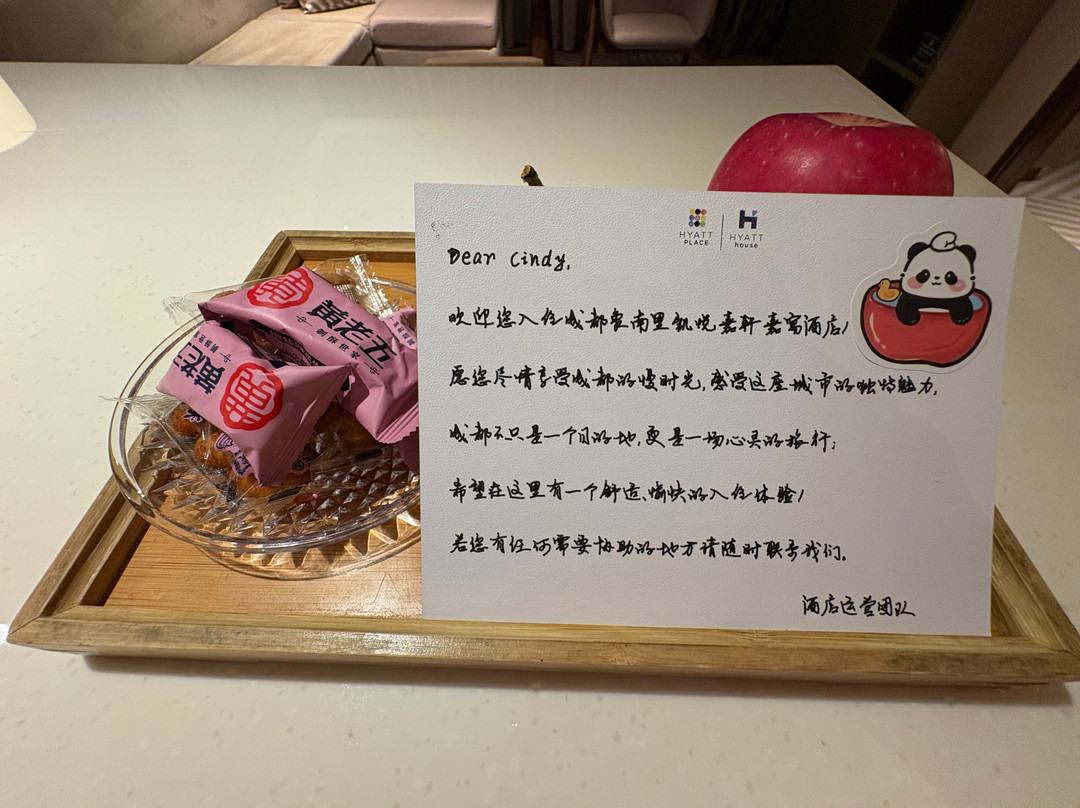 HYATT PLACE
HYATT house
Dear Cindy,
欢迎您入住成都南里凯悦嘉轩嘉寓酒店!
愿您尽情享受成都的慢时光,感受这座城市的独特魅力,
成都不只是一个目的地,更是一场心灵的旅行;
希望在这里有一个舒适、愉快的入住体验!
若您有任何需要协助的地方请随时联系我们。
酒店运营团队
黄老五
制酥世家
黄老